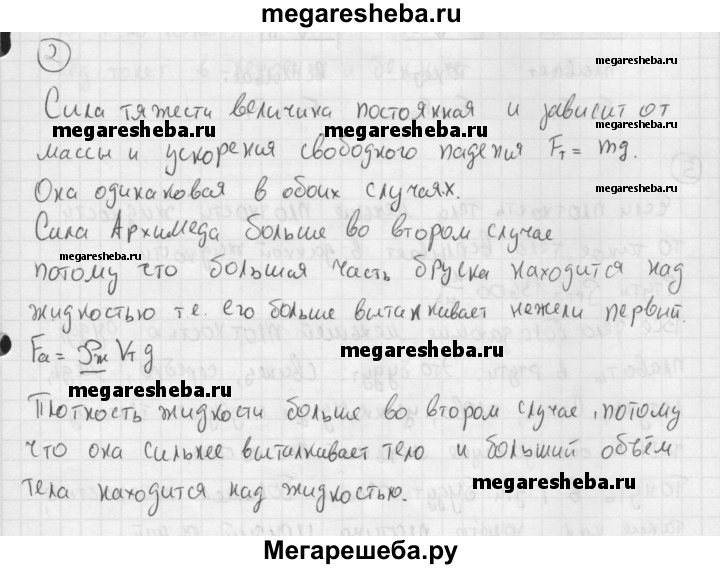 megaresheba.ru
2
megaresheba.ru
Сила тяжести величина постоянная и зависит от
megaresheba.ru megaresheba.ru
массы и ускорения свободного падения Fт = mg.
megaresheba.ru
Она одинаковая в обоих случаях.
Сила Архимеда больше во втором случае
megaresheba.ru
потому что большая часть бруска находится над
жидкостью т.е. его больше выталкивает нежели первый.
Fa = ρж Vт g
megaresheba.ru
megaresheba.ru
Плотность жидкости больше во втором случае, потому
что она сильнее выталкивает тело и больший объём
тела находится над жидкостью.
megaresheba.ru
Мегарешеба.ру